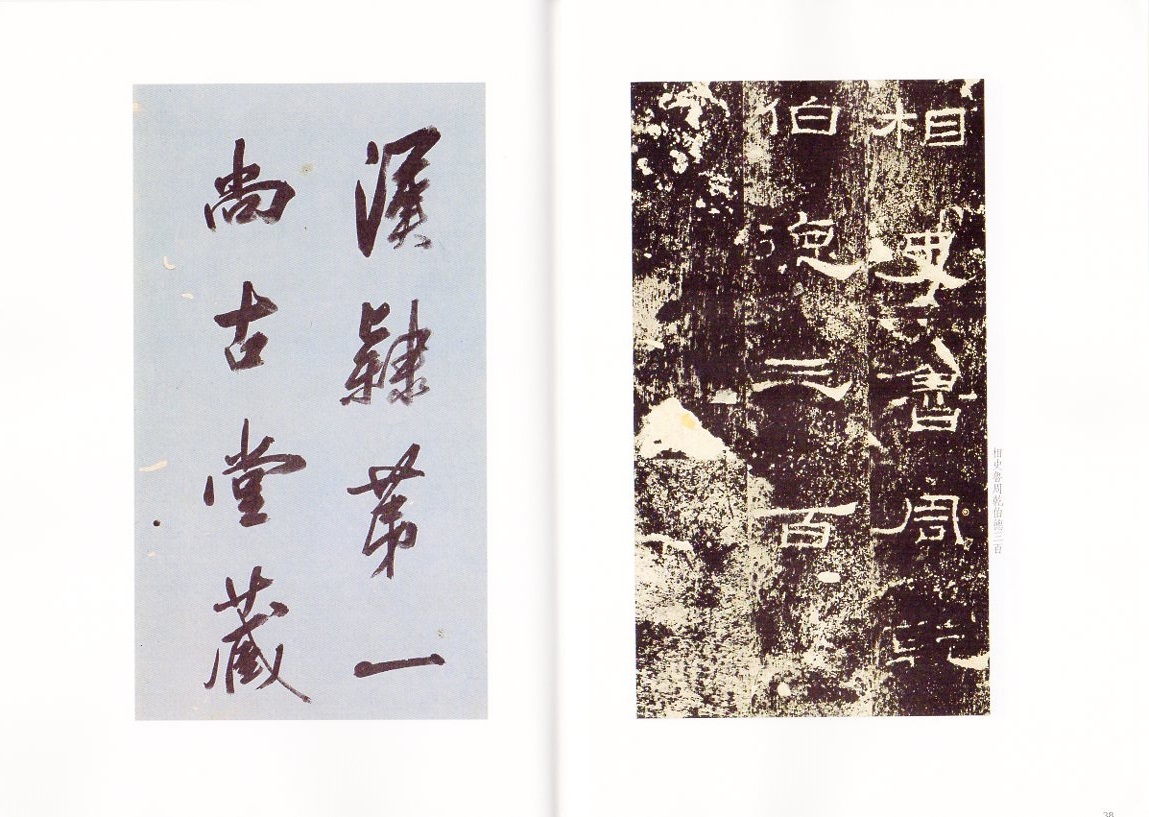 相史魯周乾
伯德三百
相史魯周乾伯德三百
漢隸苐一
尚古堂藏
38